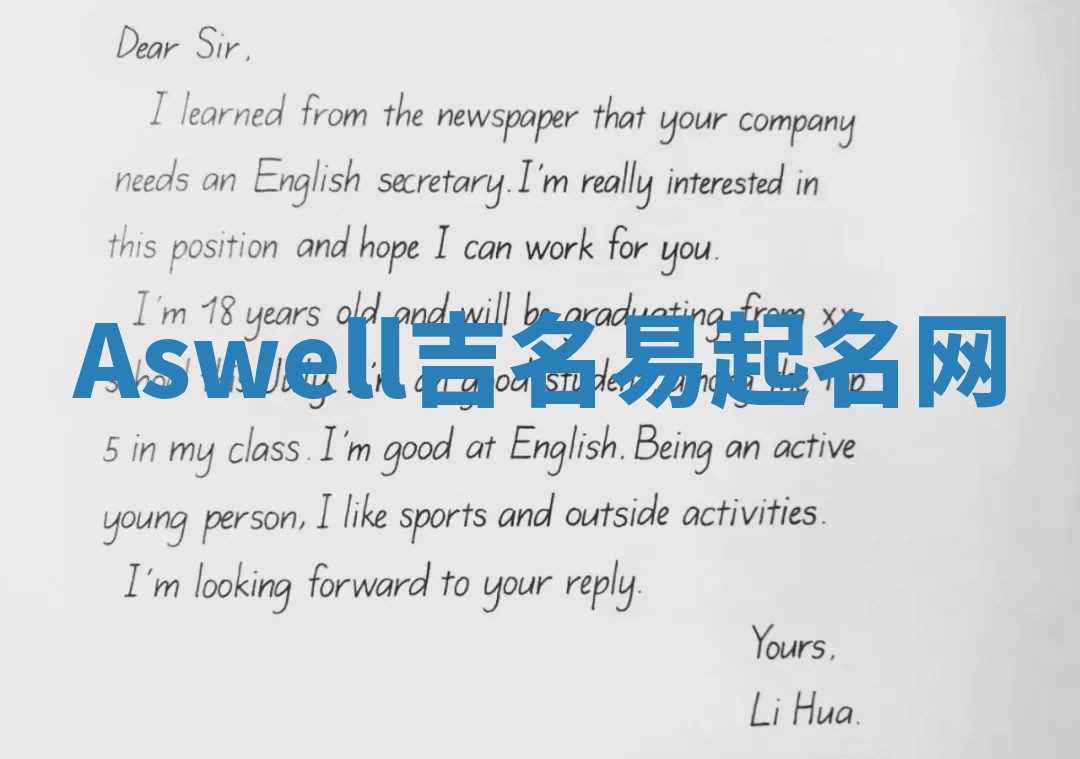 Dear Sir,
I learned from the newspaper that your company
needs an English secretary. I'm really interested in
this position and hope I can work for you.
I'm 18 years old and will be graduating from xx
Aswell吉名易起名网
school this July. I'm an good student among the top
5 in my class. I'm good at English. Being an active
young person, I like sports and outside activities.
I'm looking forward to your reply.
Yours,
Li Hua.